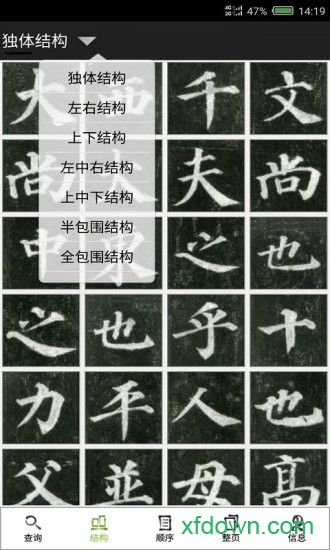 4G 4G 47% 14:19
独体结构
独体结构
左右结构
上下结构
左中右结构
上中下结构
半包围结构
全包围结构
大 西 千 文
尚 夫 尚
中 東 之 也
之 也 乎 十
力 平 人 也
父 並 母 高
查询 结构 顺序 整页 信息
xfdown.com